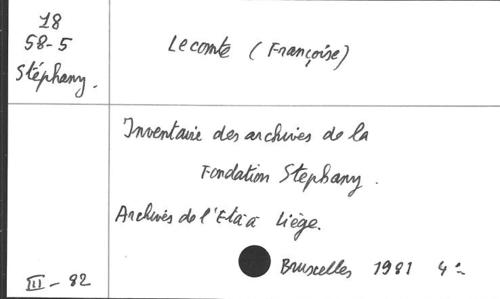 18
58-5
Stéphany.
Lecomte (Françoise)
Inventaire des archives de la
Fondation Stephany.
Archives de l'Etat à Liège.
Bruxelles 1981 4°
III - 82